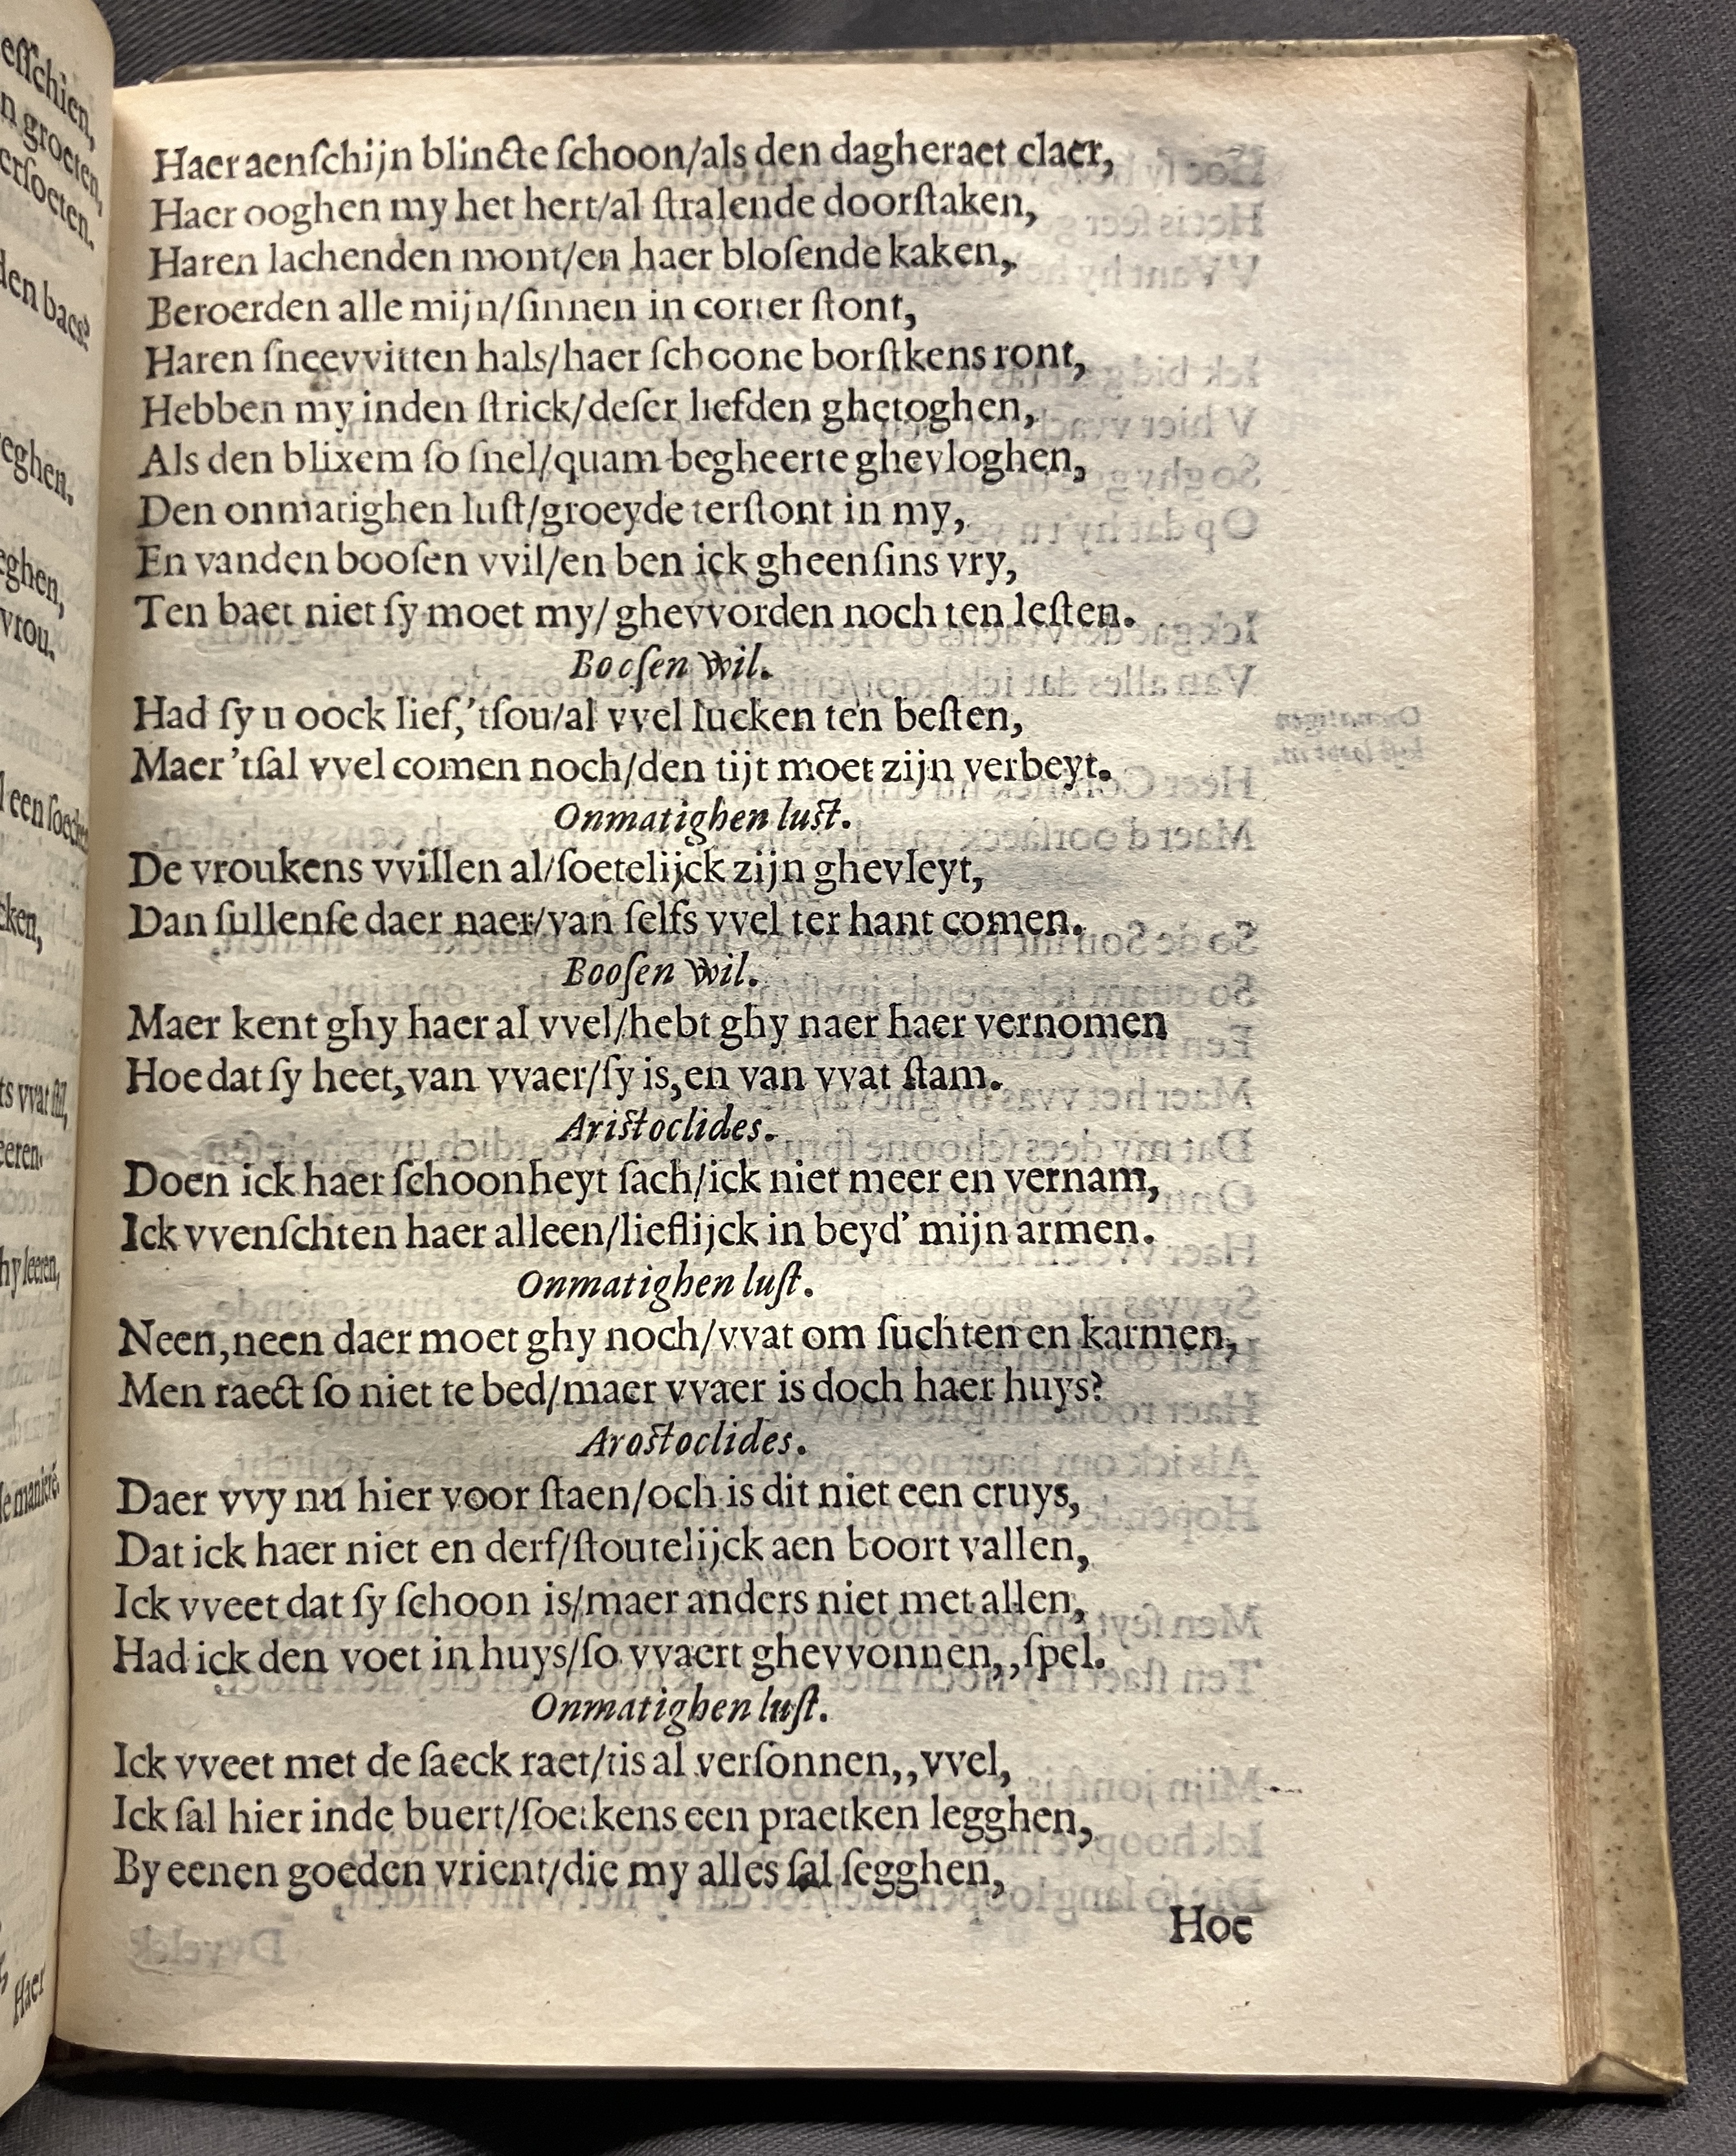 Haer aenſchijn blincte ſchoon/als den dagheraet claer,
Haer ooghen my het hert/al ſtralende doorſtaken,
Haren lachenden mont/en haer bloſende kaken,
Beroerden alle mijn/ſinnen in corter ſtont,
Haren ſneevvitten hals/haer ſchoone borſtkens ront,
Hebben my inden ſtrick/deſer liefden ghetoghen,
Als den blixem ſo ſnel/quam begheerte ghevloghen,
Den onmatighen luſt/groeyde terſtont in my,
En vanden booſen vvil/en ben ick gheenſins vry,
Ten baet niet ſy moet my/ghevvorden noch ten leſten.
Booſen wil.
Had ſy u oock lief,'tſou/al vvel lucken ten beſten,
Maer 'tſal vvel comen noch/den tijt moet zijn verbeyt.
Onmatighen luſt.
De vroukens vvillen al/ſoetelijck zijn ghevleyt,
Dan ſullenſe daer naer/van ſelfs vvel ter hant comen.
Booſen wil.
Maer kent ghy haer al vvel/hebt ghy naer haer vernomen
Hoe dat ſy heet,van vvaer/ſy is,en van vvat ſtam.
Ariſtoclides.
Doen ick haer ſchoonheyt ſach/ick niet meer en vernam,
Ick vvenſchten haer alleen/lieflijck in beyd' mijn armen.
Onmatighen luſt.
Neen,neen daer moet ghy noch/vvat om ſuchten en karmen,
Men raect ſo niet te bed/maer vvaer is doch haer huys?
Aroſtoclides.
Daer vvy nu hier voor ſtaen/och is dit niet een cruys,
Dat ick haer niet en derf/ſtoutelijck aen boort vallen,
Ick vveet dat ſy ſchoon is/maer anders niet met allen,
Had ick den voet in huys/ſo vvaert ghevvonnen,,ſpel.
Onmatighen luſt.
Ick vveet met de ſaeck raet/tis al verſonnen,,vvel,
Ick ſal hier inde buert/ſoetkens een praetken legghen,
By eenen goeden vrient/die my alles ſal ſegghen,
Hoe